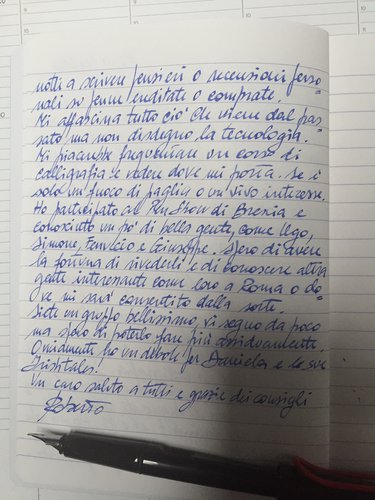 notti a scrivere pensieri o recensioni perso-
nali su penne ereditate o comprate.
Mi affascina tutto ciò che viene dal pas-
sato, ma non disdegno la tecnologia.
Mi piacerebbe frequentare un corso di
calligrafia e vedere dove mi porta. Se è
solo un fuoco di paglia o un vivo interesse.
Ho partecipato al Pen Show di Brescia e
conosciuto un po' di bella gente, come Ugo,
Simone, Ferruccio e Giuseppe. Spero di avere
la fortuna di rivederli e di conoscere altra
gente interessante come loro a Roma o do-
ve mi sarà consentito dalla sorte.
Siete un gruppo bellissimo, vi seguo da poco
ma spero di poterlo fare più assiduamente.
Ovviamente ho un debole per Daniela e le sue
Un caro saluto a tutti e grazie dei consigli
Roberto